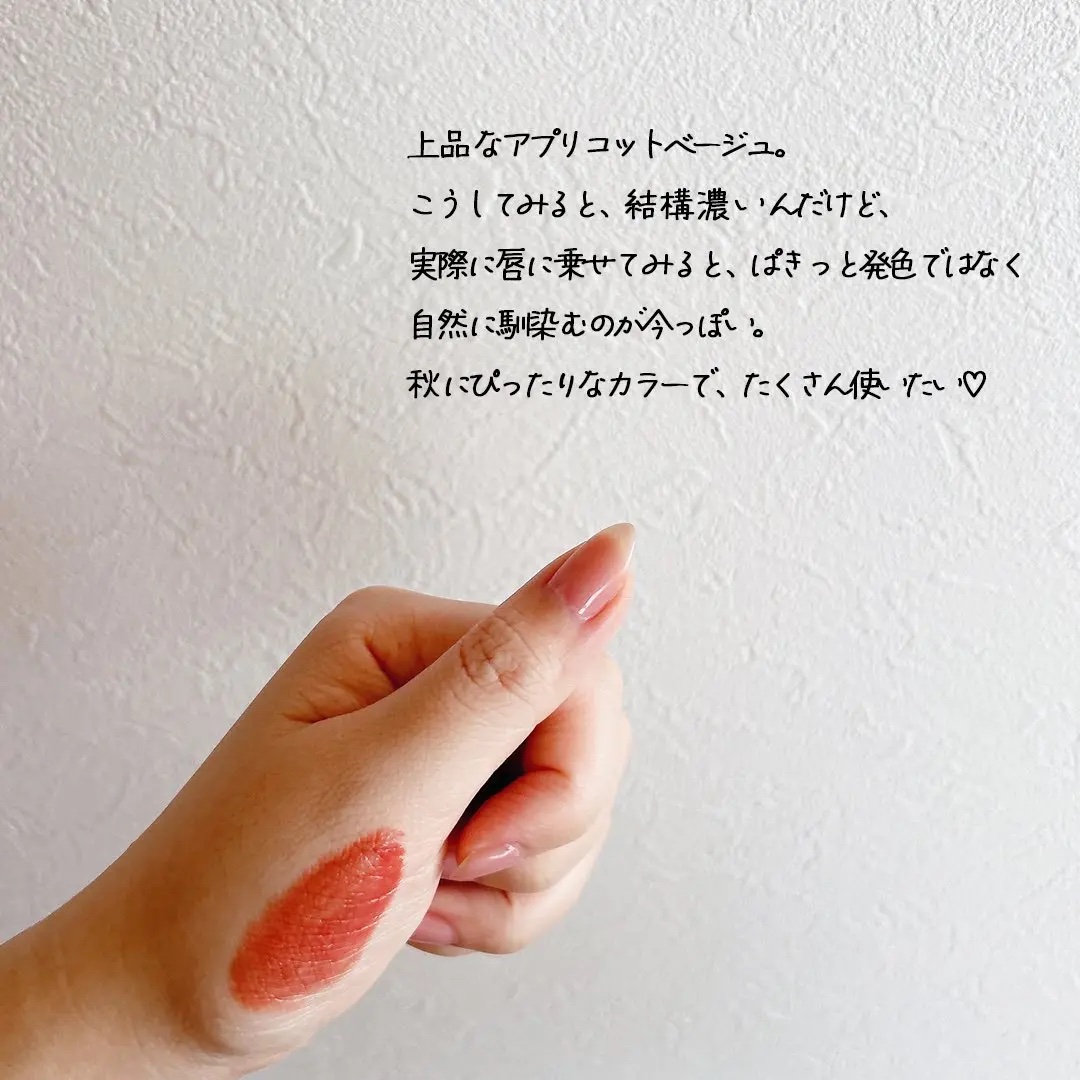 上品なアプリコットベージュ。
こうしてみると、結構濃いんだけど、
実際に唇に乗せてみると、ぱきっと発色ではなく
自然に馴染むのが今っぽい。
秋にぴったりなカラーで、たくさん使いたい♡